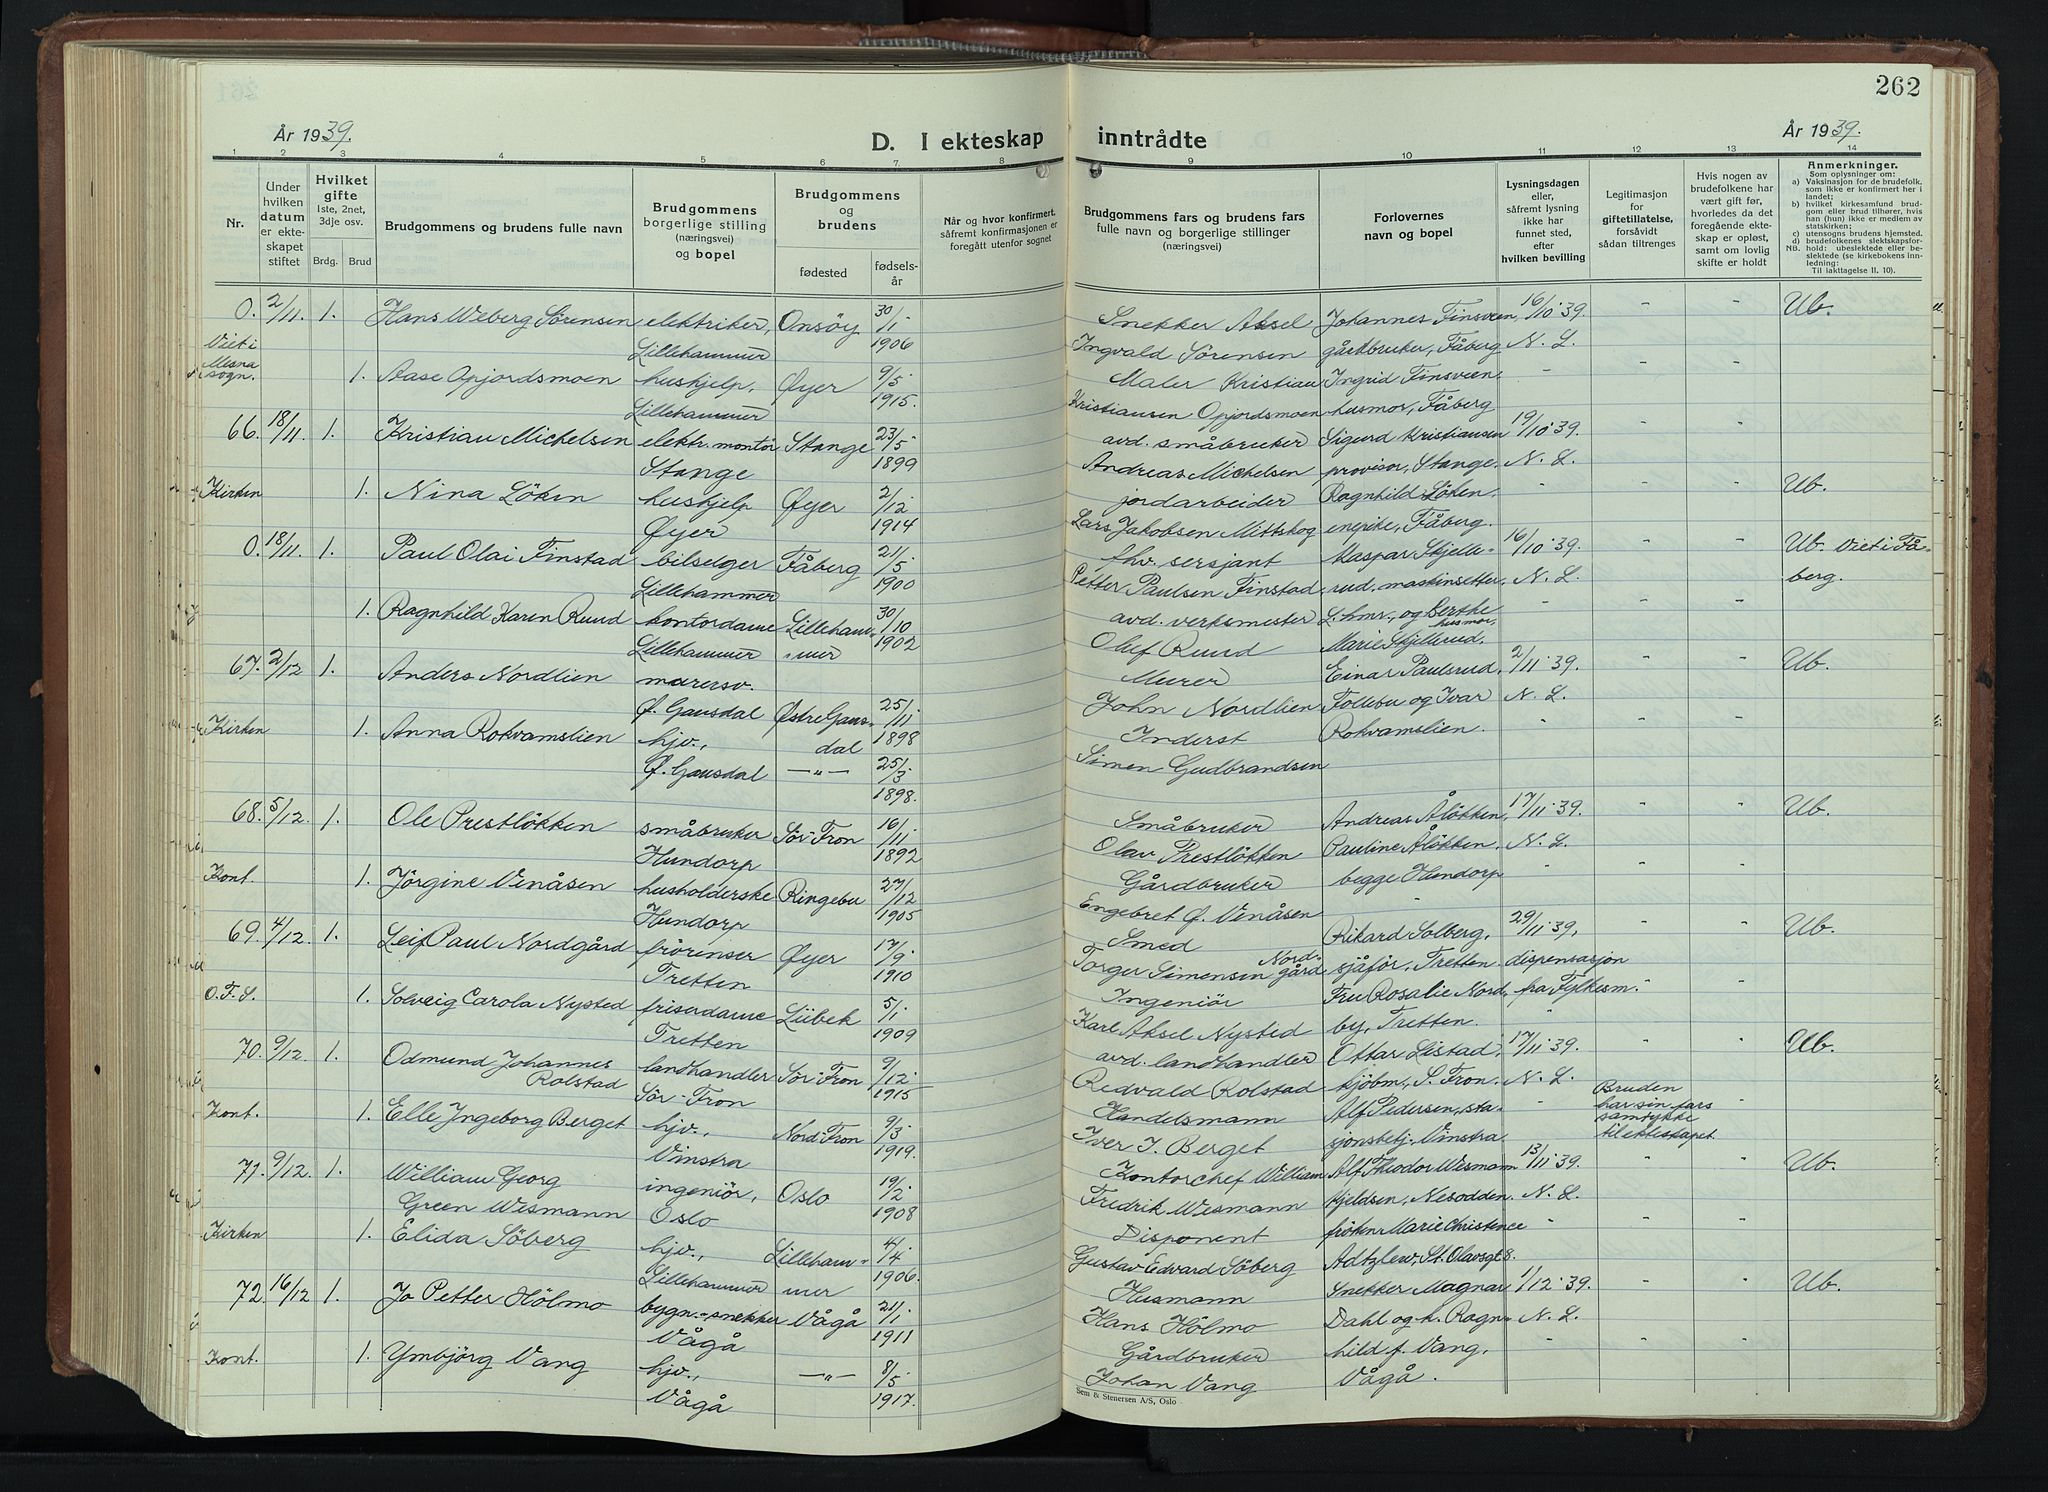 262
År 1939.
D. I ekteskap inntrådte
År 1939.
1 2 3 4 5 6 7. 8 9 10 11 12 13 14
Nr.
Under hvilken datum er ekteskapet stiftet
Hvilket gifte
1ste, 2net, 3dje osv.
Brdg. Brud
Brudgommens og brudens fulle navn
Brudgommens borgerlige stilling (næringsvei) og bopel
Brudgommens og brudens
fødested
fødselsår
Når og hvor konfirmert, såfremt konfirmasjonen er foregått utenfor sognet
Brudgommens fars og brudens fars fulle navn og borgerlige stillinger (næringsvei)
Forlovernes navn og bopel
Lysningsdagen eller, såfremt lysning ikke har funnet sted, efter hvilken bevilling
Legitimasjon for giftetillatelse, forsåvidt sådan tiltrenges
Hvis nogen av brudefolkene har vært gift før, hvorledes da det foregående ekteskap er opløst, samt om lovlig skifte er holdt
Anmerkninger.
Som oplysninger om:
a) Vaksinasjon for de brudefolk, som ikke er konfirmert her i landet;
b) hvilket kirkesamfund brudgom eller brud tilhører, hvis han (hun) ikke er medlem av statskirken;
c) utensogns brudens hjemsted.
d) brudefolkenes slektskapsforhold: ubeslektede eller beslektede (se kirkebokens innledning:
NB.
Til iakttagelse II, 10).
0. 2/11. 1. Hans Weberg Sörensen elektriker, Onsöy 30/1 1906 Snekker Aksel Johannes Finsveen, 16/10 39. " " Ub.
Viet i Mesna sogn. Lillehammer Ingvald Sörensen gårdbruker, Fåberg N. L.
1. Aase Opjordsmoen hushjelp, Øyer 9/5 1915. Maler Kristian Ingrid Finsveen
Lillehammer Kristiansen Opjordsmoen husmor, Fåberg
66. 18/11. 1. Kristian Michelsen elektr. montör Stange 23/5 1899 avd. småbruker Sigurd Kristiansen 19/10 39.
Stange Andreas Michelsen provisor, Stange. N. L.
Kirken 1. Nina Löken hushjelp Øyer 2/12 1914 jordarbeider Ragnhild Löken. Ub.
Øyer Lars Jakobsen Mittskog enepike, Fåberg.
0. 18/11. 1. Paul Olai Finstad bilselger Fåberg 21/5 1900 fhv. sersjant Kaspar Skjelle- 16/10 39. Ub. Viet i Få-
Lillehammer Petter Paulsen Finstad rud, maskinsetter, N. L. berg.
1. Ragnhild Karen Ruud kontordame Lilleham- 30/10 1902 avd. verksmester L.hmr., og Berthe
husmor,
Lillehammer mer Olef Ruud Marie Skjellerud.
67. 2/12 1. Anders Nordlien murersv. Murer Einar Paulsrud, 2/11 39. Ub.
Ø. Gausdal Østre Gaus- 25/11 1898 John Nordlien Follebu og Ivar N. L.
Kirken 1. Anna Rokvamslien hjv., dal Inderst Rokvamslien.
Ø. Gausdal —"— 25/3 1898. Simen Gudbrandsen
68. 5/12. 1. Ole Prestlökken småbruker Sör-Fron 16/11 1892 Småbruker Andreas Ålökken, 17/11 39. Ub.
Hundorp Olav Prestlökken Pauline Ålökken N. L.
Kont. 1. Jörgine Venåsen husholderske Ringebu 27/12 1905 Gårdbruker begge Hundorp
Hundorp Engebret Ø. Venåsen
69. 4/12. 1. Leif Paul Nordgård frörenser Øyer 17/9 1910 Smed Rikard Solberg, 29/11 39, Ub.
Tretten Torger Simensen Nordgård sjåför, Tretten dispensasjon
O.F.S. 1. Solveig Carola Nysted friserdame Lübek 5/1 1909 Ingeniör Fru Rosalie Nord, fra Fylkesm.
Tretten Karl Aksel Nysted by, Tretten.
70. 9/12. 1. Odmund Johannes landhandler Sör-Fron 9/12 1915 avd. landhandler Ottar Listad, 17/11 39. Ub.
Rolstad Sör-Fron Redvald Rolstad kjöbm., S. Fron. N. L. Bruden
Kont. 1. Elle Ingeborg Berget hjv., Nord-Fron 9/3 1919. Handelsmann Alf Pedersen, sta- har sin fars samtykke
Vinstra Iver J. Berget sjonsbetj. Vinstra til ekteskapet.
71. 9/12. 1. William Georg ingeniör, Oslo 19/2 1908 Kontorchef William Alf Theodor Wesmann 13/11 39. Ub.
Green Wesmann Oslo Fredrik Wesmann kjeldsen, Nesodden. N. L.
Kirken 1. Elida Söberg hjv., Lilleham- 4/4 1906. Disponent fröken Marie Christence
Lillehammer mer Gustav Edvard Söberg Adtzlew, St. Olavsgt. 8.
72. 16/12 1. Jo Petter Hölmo bygn.-snekker Vågå 21/1 1911 Husmann Snekker Magnar 1/12 39. Ub.
Vågå Hans Hölmo Dahl og k. Ragn- N. L.
Kont. 1. Ymbjörg Vang hjv., —"— 8/5 1917. Gårdbruker hild f. Vang,
Vågå Johan Vang Vågå.
Sem & Stenersen A/S, Oslo